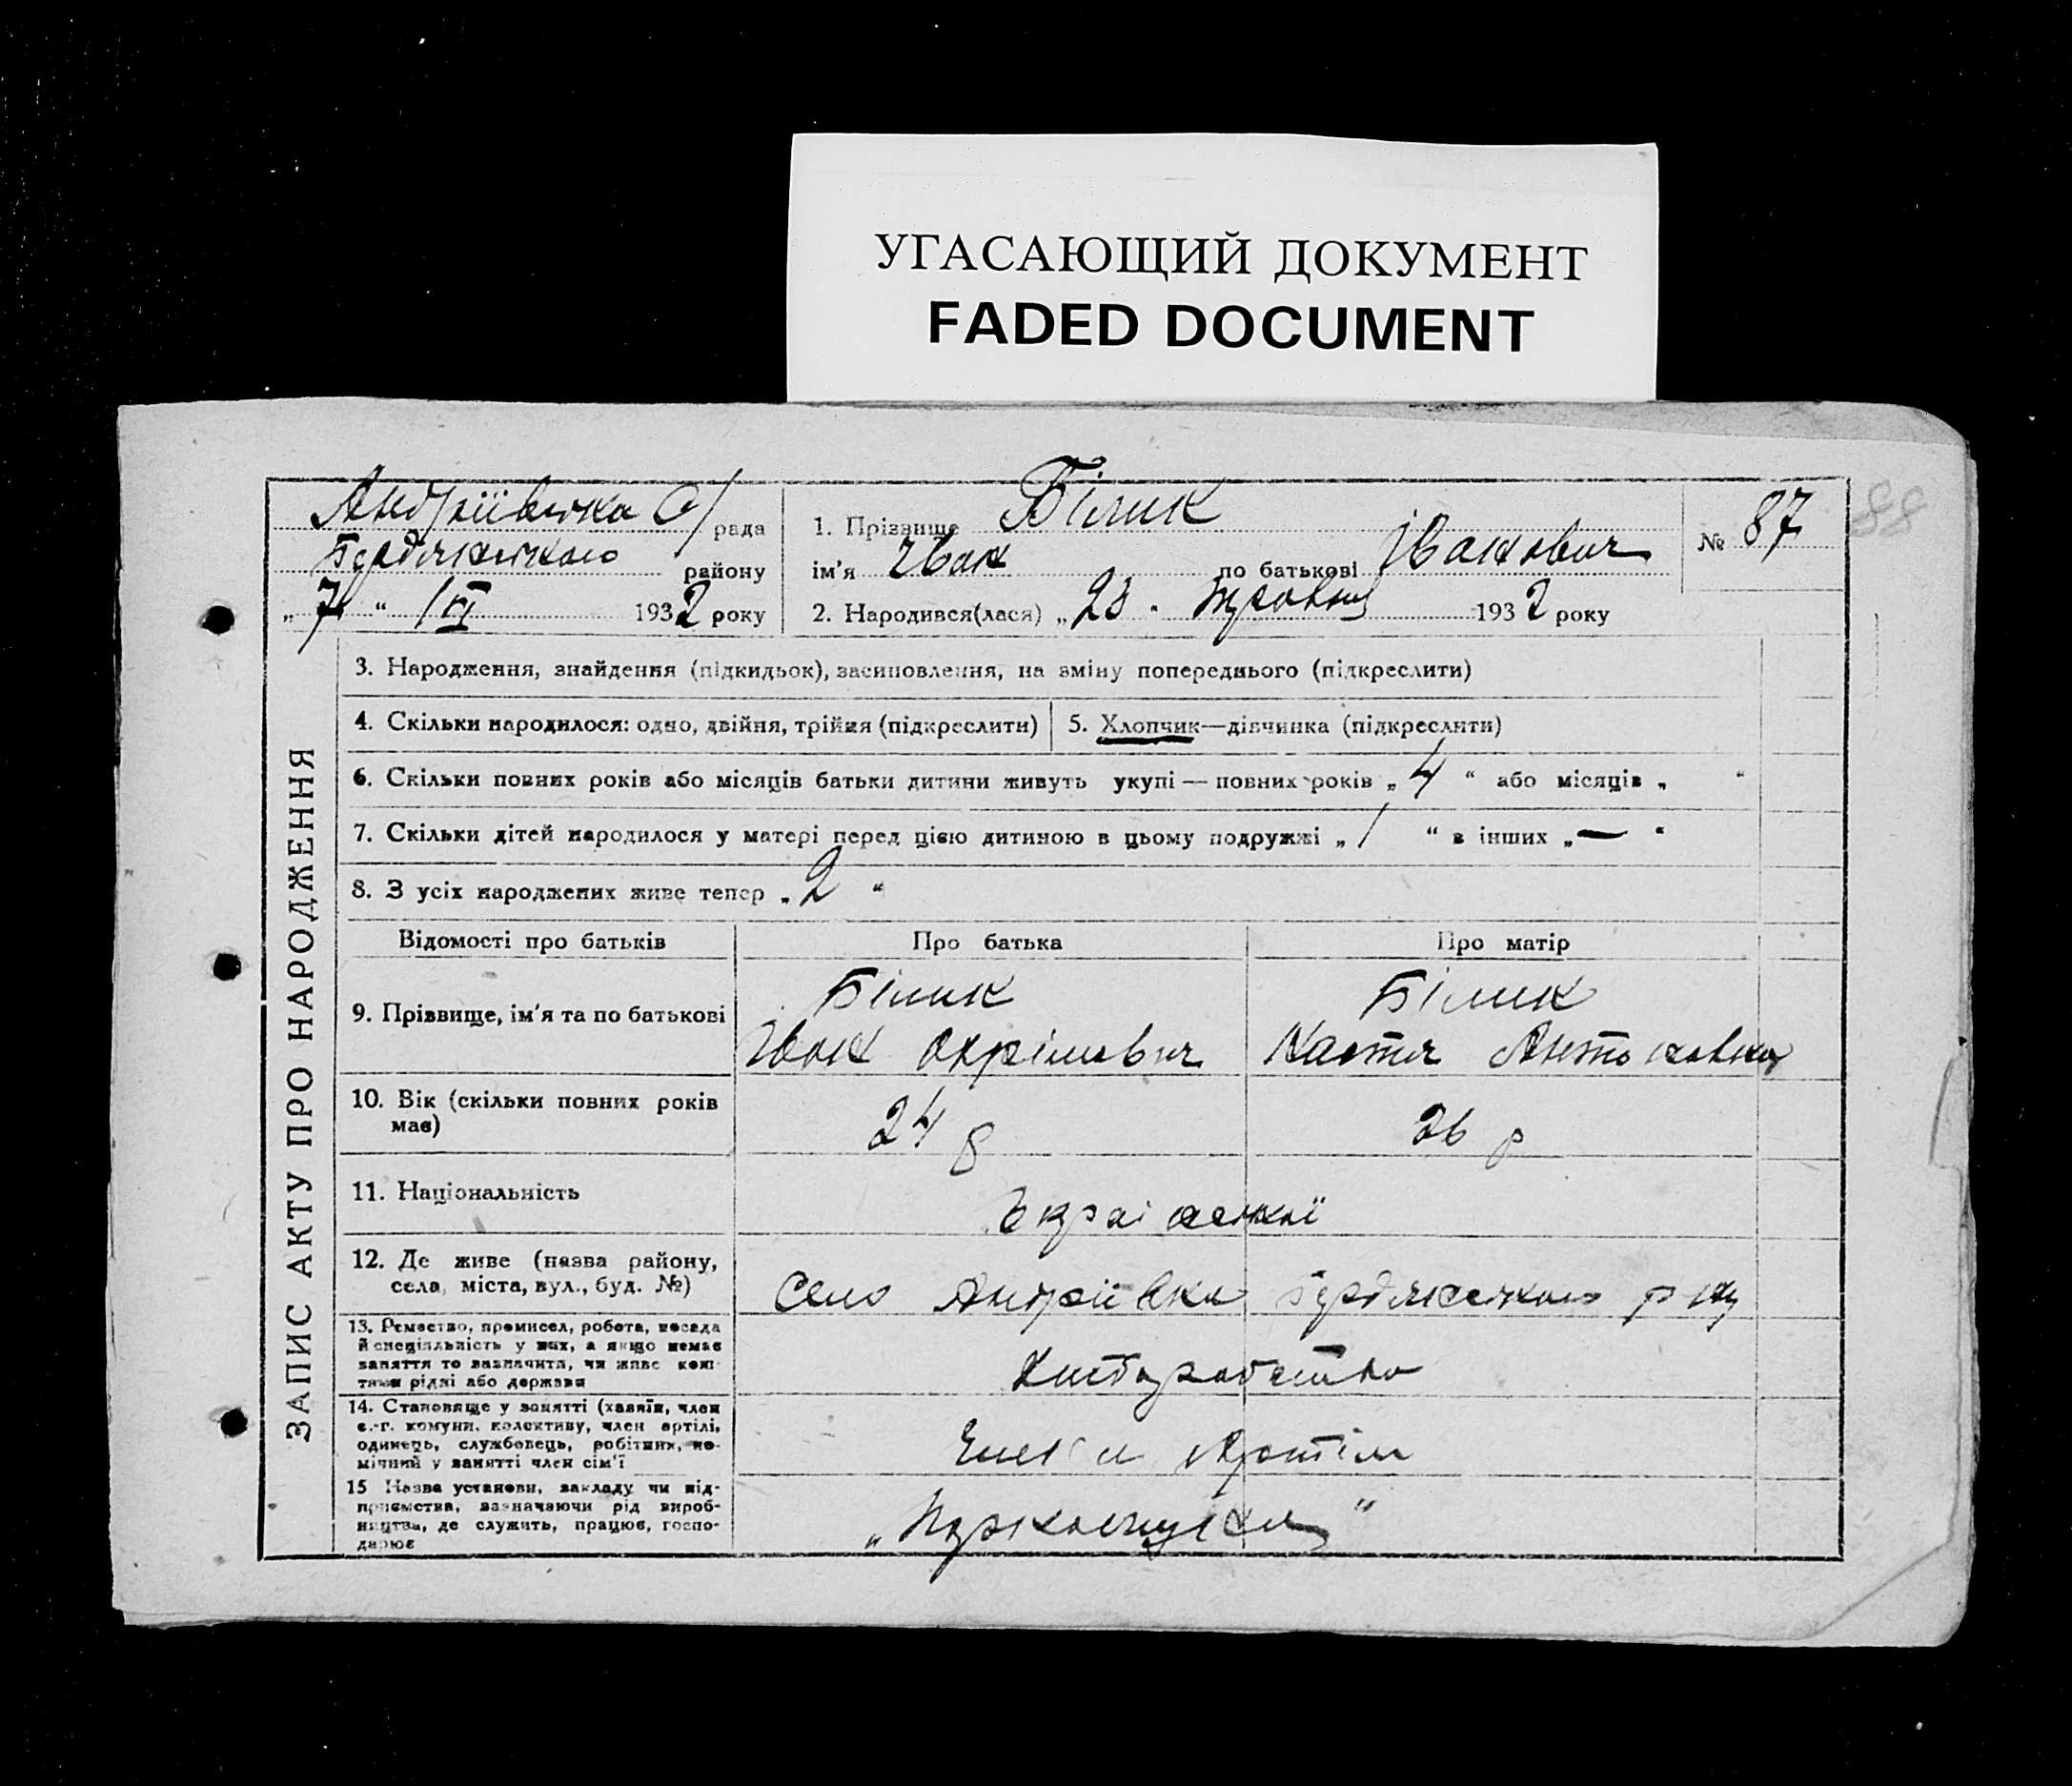 УГАСАЮЩИЙ ДОКУМЕНТ
FADED DOCUMENT
Андріївська С/рада
Бердянського району
„7“ VI 1932 року
1. Прізвище Білик
ім'я Іван по батькові Іванович
2. Народився(лася) „23. травня 1932 року
№ 87
88
ЗАПИС АКТУ ПРО НАРОДЖЕННЯ
3. Народження, знайдення (підкидьок), засиновлення, на зміну попереднього (підкреслити)
4. Скільки народилося: одно, двійня, трійня (підкреслити)
5. Хлопчик—дівчинка (підкреслити)
6. Скільки повних років або місяців батьки дитини живуть укупі — повних років „4“ або місяців „ “
7. Скільки дітей народилося у матері перед цією дитиною в цьому подружжі „1“ в інших „—“
8. З усіх народжених живе тепер „2“
Відомості про батьків Про батька Про матір
9. Прізвище, ім'я та по батькові
Білик
Іван Охрімович
Білик
Настя Антоновна
10. Вік (скільки повних років
має)
24 р
26 р
11. Національність
Українській
12. Де живе (назва району,
села, міста, вул., буд. №)
Село Андріївка Бердянського р-ну
13. Ремество, промисел, робота, посада
й спеціяльність у них, а якщо немає
заняття то зазначити, чи живе кош-
тами рідні або держави
Хліборобство
14. Становище у занятті (хазяїн, член
с.-г. комуни, колективу, член артілі,
одинець, службовець, робітник, по-
мічний у занятті член сім'ї
Член с Артіли
15 Назва установи, закладу чи під-
приємства, зазначаючи рід вироб-
ництва, де служить, працює, госпо-
дарює